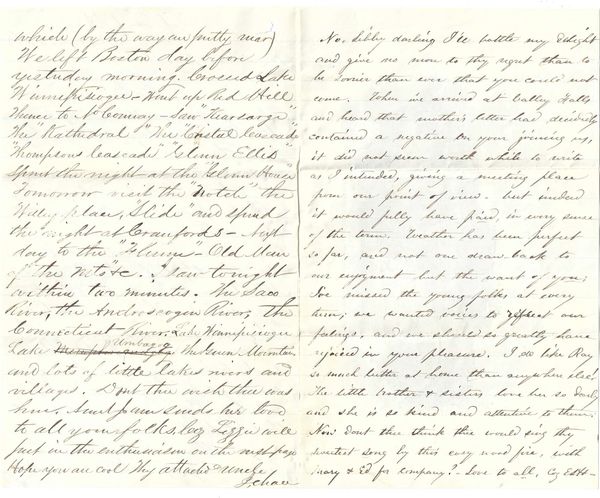 which (by the way are pretty near)
We left Boston day before
yesterday morning. Crossed Lake
Winnipisiogee - Went up Red Hill
Thence to No Conway - Saw "Kearsarge"
"The Kathedral" "The "Cristal Cascade
"Thompsons Cascade" "Glenn Ellis"
Spent the night at the Glenn House
Tomorrow visit the "Notch" the
Willey place, Slide" and spend
the night at Crawfords - Next
day to the "Flume" - Old Man
of the Mts &c. Saw tonight
within two minutes. The Saco
River, the Androscogin River, the
Connecticut River, Lake Winnepisiogee
Lake Umbagog The Green Mountains
and lots of little lakes rivers and
villages. Dont thee wish thee was
here. Aunt Jane sends her love
to all your folks. Coz Lizzie will
put in the enthusiasm on the next page
Hope you are cool Thy attached Uncle
J. Chace
No, Libby darling I'll bottle my delight
and give no more to thy regret than to
be sorrier than ever that you could not
come. When we arrived at Valley Falls
and heard that mother's letter had decidedly
contained a negative on your joining us,
it did not seem worth while to write
as I intended, giving a meeting place
from our point of view - but indeed
it would fully have paid, in every sense
of the term. Weather has been perfect
so far, and not one draw-back to
our enjoyment but the want of you;
I've missed the young folks at every
turn; we wanted voices to effect our
feelings, and we should so greatly have
rejoiced in your pleasure. I do like Ray
so much better at home than anywhere else!
The little brother & sisters love her so dearly
and she is so kind and attentive to them.
Now dont thee think thee would sing thy
sweetest song by this cosy wood fire, with
Mary & Ed for company? - Love to all, Coz